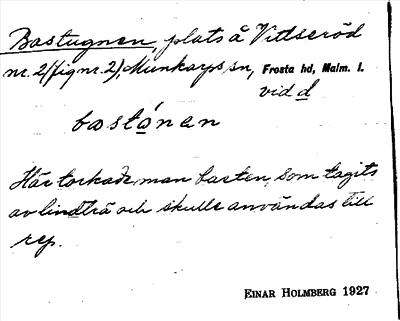 Bastugnen, plats å Vitseröd
nr. 2 (fig nr. 2), Munkarps sn, Frosta hd, Malm. l.
vid d
bastónen
Här torkade man basten, som tagits
av lindträ och skulle användas till
rep.
EINAR HOLMBERG 1927